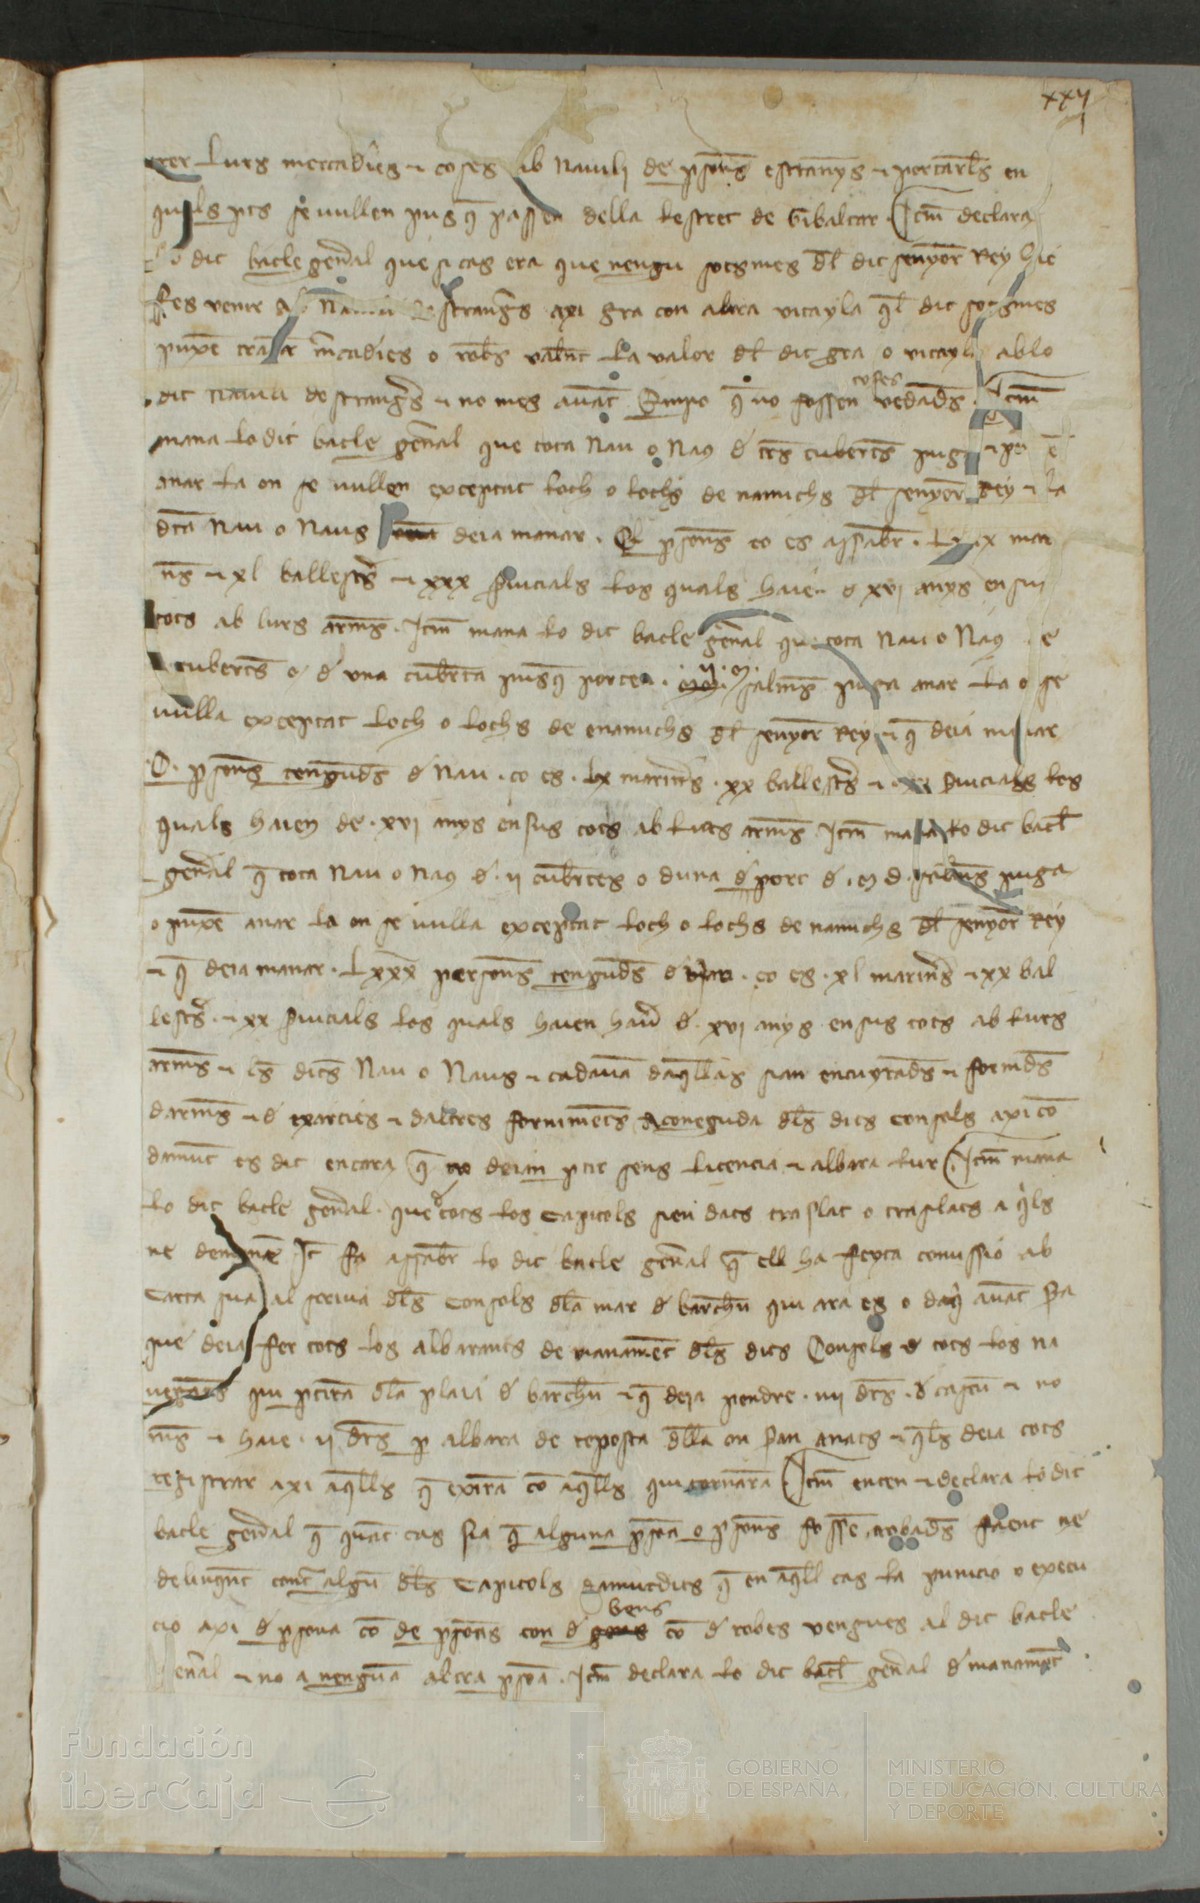 xxij
lurs mercadies ⁊ coses ab nauili de psones estranys ⁊ portarles en
quals pts se uullen pus q̄ passen della lestret de Gibaltar Itm̄ declara
lo dit batle gen̄al que si cas era que nengu sotsmes dl̄ dit senyor Rey
fes venir strangs̄ axi gra con altra vitayla ql̄ dit sotsmes
puxe mcadies o robes valent la valor dl̄ dit gra o vitayla ab lo
dit nauili destrangs̄ ⁊ no mes auāt Empo q̄ no fossen coses vedades Itm̄
mana lo dit batle gen̄al que tota Nau o Naus d̄ tres cubertes
anar la on se uullen exceptat loch o lochs de namichs dl̄ senyor Rey ⁊ la
dita Nau o Naus deia manar C psones co es assaber Lx mari
ns̄ ⁊ xl ballests̄ ⁊ xxx seruicials los quals xvi anys en sus
tots ab lurs armes Itm̄ mana lo dit batle gen̄al que tota Nau o Naus
cubertes o d̄ vna cuberta pusq̄ salmes puga anar la o se
uulla exceptat loch o lochs de enamichs dl̄ senyor Rey ⁊ q̄ deia
C psones tengudes d̄ Nau co es Lx mariners xx ballests̄ ⁊ xx seruicials los
quals haien de xvi anys en sus tots ab lurs armes Itm̄ mana lo dit batl̄e
gen̄al q̄ tota Nau o Naus d̄ ii cubertes o duna d̄ port d̄ puga
o puxē anar la on se uulla exceptat loch o lochs de namichs dl̄ senyor Rey
⁊ q̄ deia manar Lxxx persones tengudes co es xl mariners ⁊ xx bal
lests̄ ⁊ xx seruicials los quals haien hauer d̄ xvi anys en sus tots ab lurs
armes ⁊ ls̄ dites Nau o Naus ⁊ cadauna daquellas sian encuyrades ⁊ fornides
darmes ⁊ d̄ exarcies ⁊ daltres forniments a coneguda dls̄ dits Consols axi cō
damūt es dit encara q̄ no deian ptir sens licencia ⁊ albara lur Itm̄ mana
lo dit batle gen̄al que tots los Capitols sien dats traslat o traslats a qls̄
ne demanē It̄ fa assaber lo dit batle gen̄al q̄ ell ha feyta comissio ab
Carta sua al scriua dls̄ Consols dla mar d̄ barchn̄ qui ara es o daqi auāt sera
que deia fer tots los albarants de manamēt dls̄ dits Consols d̄ tots los na
uegants qui ptirā dla plaia d̄ barchn̄ ⁊ q̄ deia pendre iiii drs̄ d̄ cascū ⁊ no
ms̄ ⁊ haie ii drs̄ p albara de reposta dlla on seran anats ⁊ qls̄ deia tots
registrar axi aqlls̄ q̄ exirā cō aqlls̄ qui tornarā Itm̄ enten ⁊ declara lo dit
batle gen̄al q̄ quāt cas sia q̄ alguna psona o psones fossē trobades faent ne
delinqnt contr̄ algū dls̄ Capitols damūtdits q̄ en aqll cas la punicio o execu
cio axi d̄ psona cō de psones con d̄ bens cō d̄ robes vengues al dit batle
gen̄al ⁊ no a nenguna altra psona Itm̄ declara lo dit batl̄e gen̄al d̄ manamēt
Fundación
iberCaja
GOBIERNO
DE ESPAÑA
MINISTERIO
DE EDUCACIÓN, CULTURA
Y DEPORTE